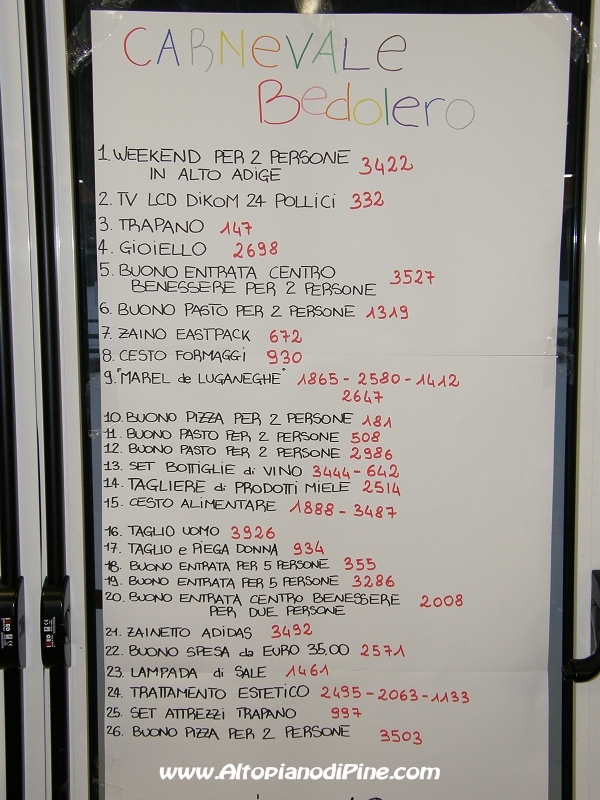 CARNEVALE
Bedolero
1. WEEKEND PER 2 PERSONE 3422
IN ALTO ADIGE
2. TV LCD DIKOM 24 POLLICI 332
3. TRAPANO 147
4. GIOIELLO 2698
5. BUONO ENTRATA CENTRO 3527
BENESSERE PER 2 PERSONE
6. BUONO PASTO PER 2 PERSONE 1319
7. ZAINO EASTPACK 672
8. CESTO FORMAGGI 930
9. "MAREL de LUGANEGHE" 1865 - 2580 - 1412
2647
10. BUONO PIZZA PER 2 PERSONE 181
11. BUONO PASTO PER 2 PERSONE 508
12. BUONO PASTO PER 2 PERSONE 2986
13. SET BOTTIGLIE di VINO 3444 - 642
14. TAGLIERE di PRODOTTI MIELE 2514
15. CESTO ALIMENTARE 1888 - 3487
16. TAGLIO UOMO 3926
17. TAGLIO e PIEGA DONNA 934
18. BUONO ENTRATA PER 5 PERSONE 355
19. BUONO ENTRATA PER 5 PERSONE 3286
20. BUONO ENTRATA CENTRO BENESSERE 2008
PER DUE PERSONE
21. ZAINETTO ADIDAS 3492
22. BUONO SPESA da EURO 35,00 2571
23. LAMPADA di SALE 1461
24. TRATTAMENTO ESTETICO 2495 - 2063 - 1133
25. SET ATTREZZI TRAPANO 997
26. BUONO PIZZA PER 2 PERSONE 3503
www.AltopianodiPine.com